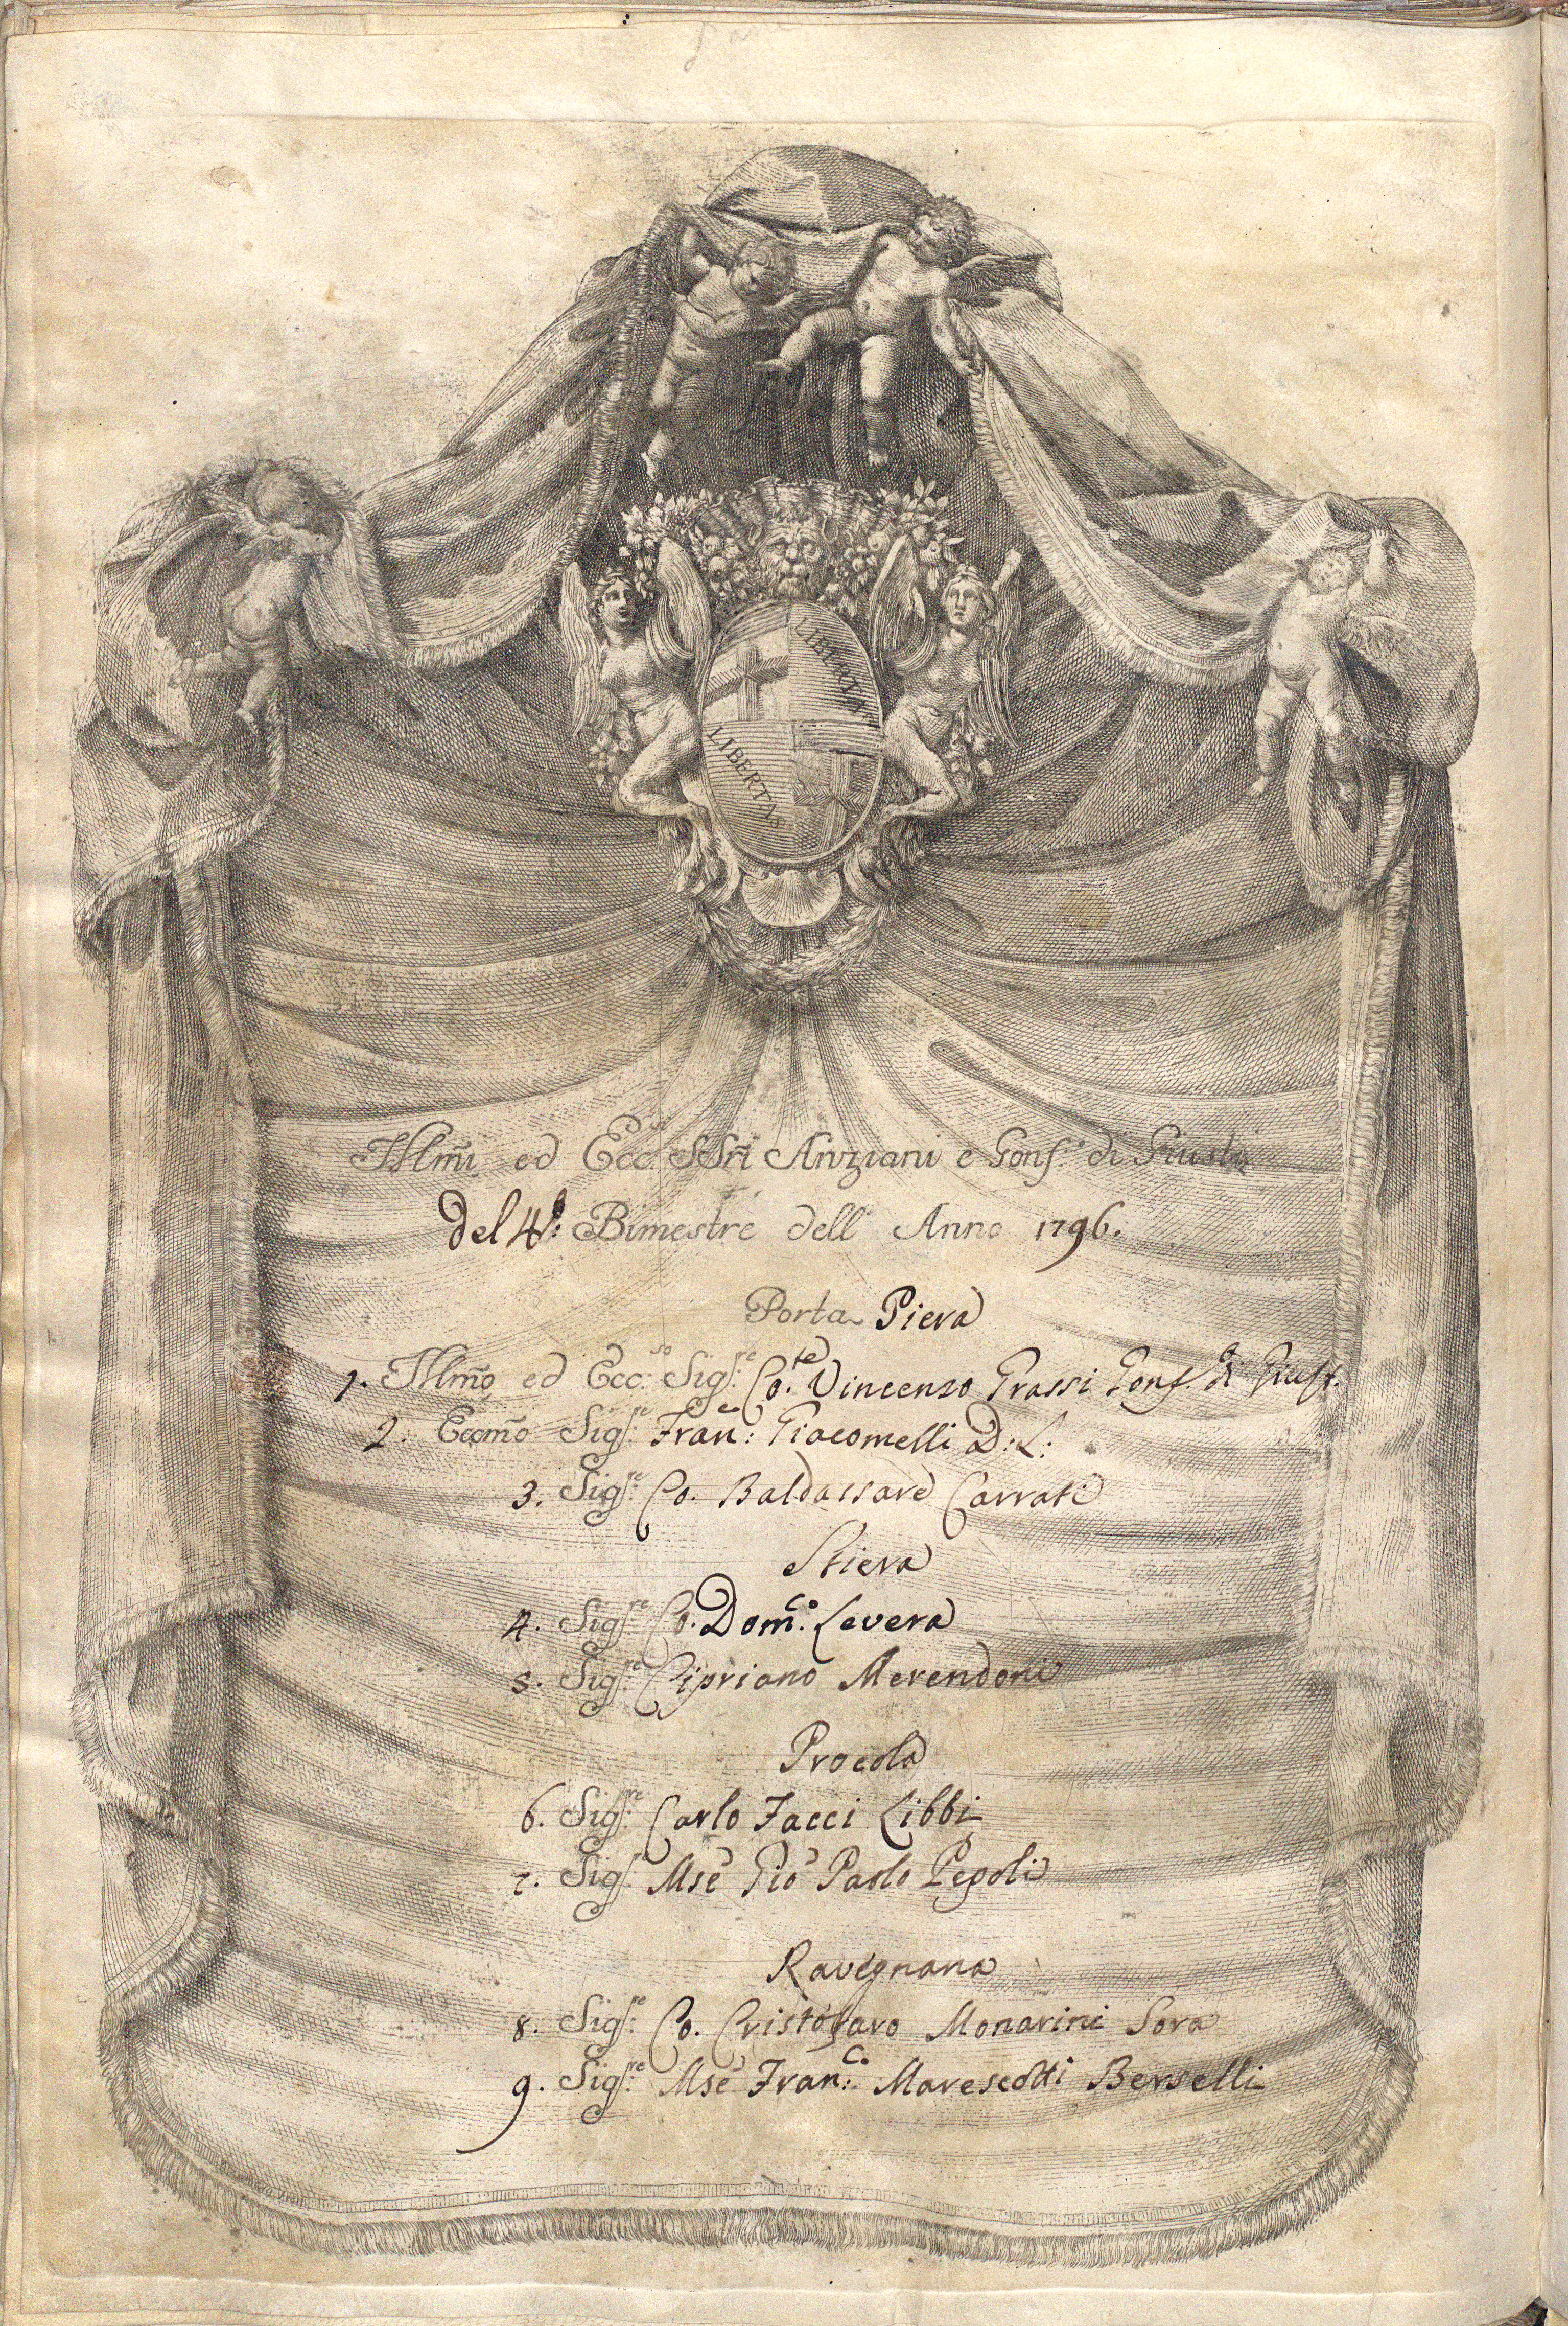 LIBERTAS
LIBERTAS
Illm̃i ed Ecc.si SSri Anziani e Gonf.e di Giustia
del 4.o: Bimestre dell' Anno 1796.
Porta Piera
1. Illm̃o ed Ecc.so Sig.re Co.te Vincenzo Grassi Gonf.e di Giust.
2. Eccm̃o Sig.re Fran.co: Giacomelli D: L:
3. Sig.re Co. Baldassare Carrati
Stiera
4. Sig.re Co. Dom.co: Levera
5. Sig.re Cipriano Merendoni
Procola
6. Sig.re Carlo Facci Libbi
7. Sig.re Mse Gio Paolo Pepoli
Ravegnana
8. Sig.re Co. Cristofaro Monarini Sora
9. Sig.re Mse Fran.co: Marescotti Berselli